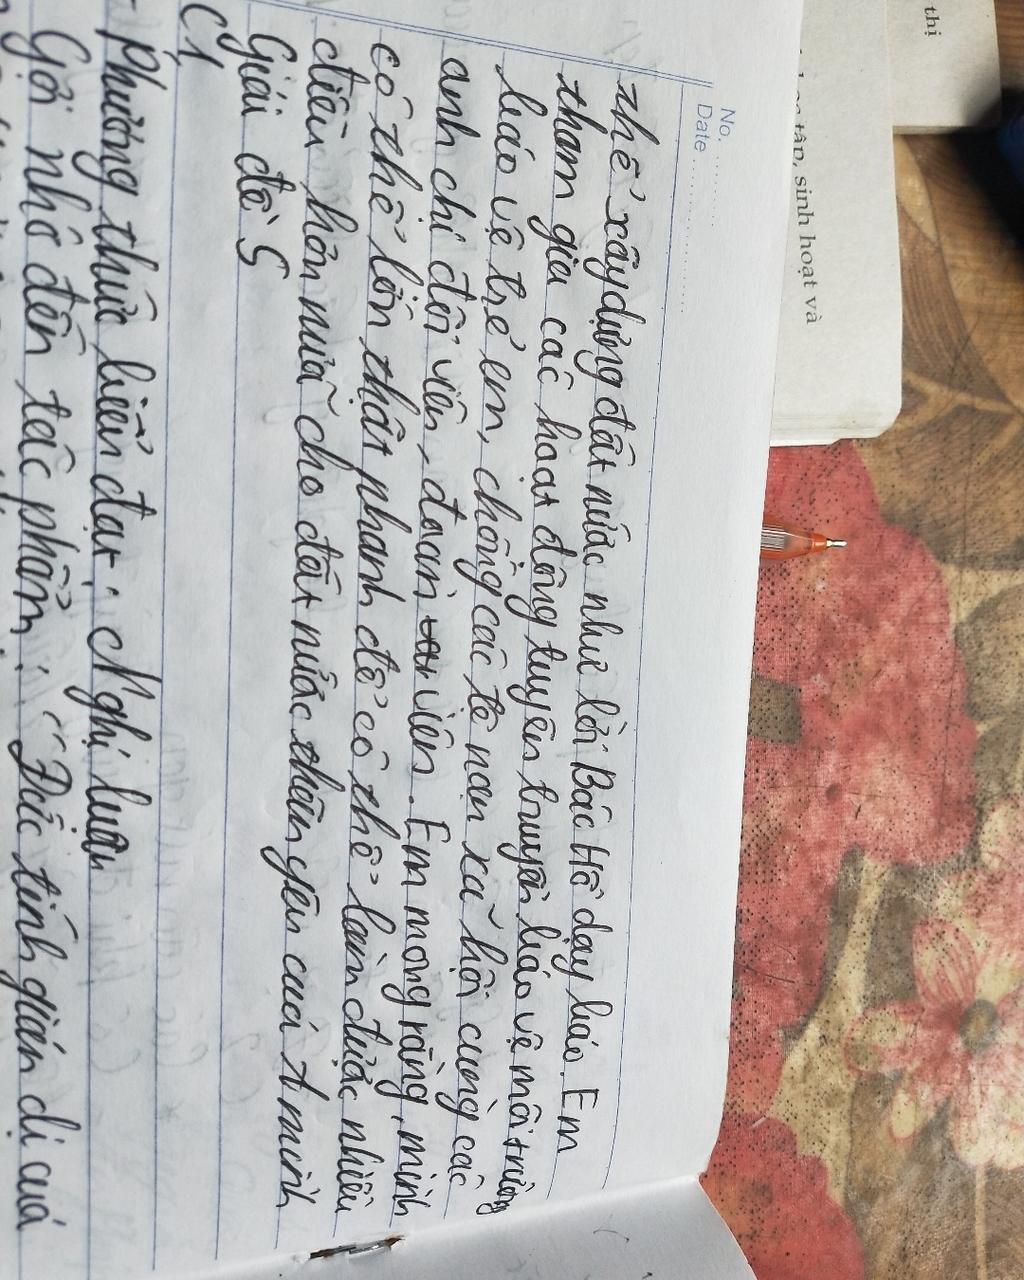 thị
tập, sinh hoạt và
No.
Date
thể xây dựng đất nước như lời Bác Hồ dạy bảo. Em
tham gia các hoạt động tuyên truyền bảo vệ môi trường
bảo vệ trẻ em, chống các tệ nạn xã hội cùng các
anh chị đội viên, đoàn viên. Em mong rằng, mình
có thể lớn thật nhanh để có thể làm được nhiều
điều hơn nữa cho đất nước thân yêu của mình
Giải đề 5
C1
- Phương thức biểu đạt: Nghị luận
Gợi nhớ đến tác phẩm: "Đức tính giản dị của